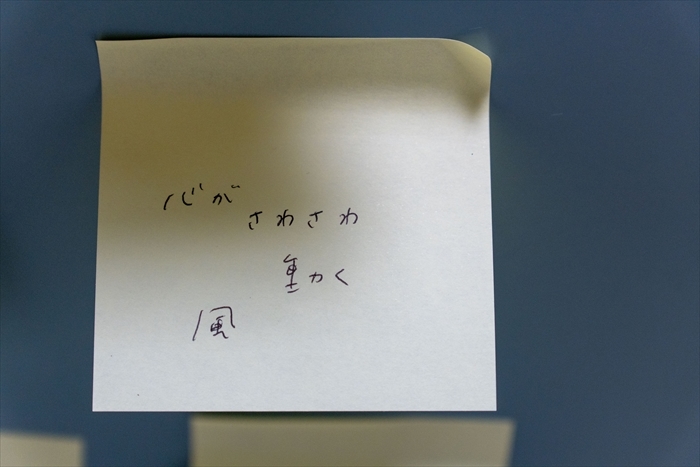 心が
さわさわ
動く
風